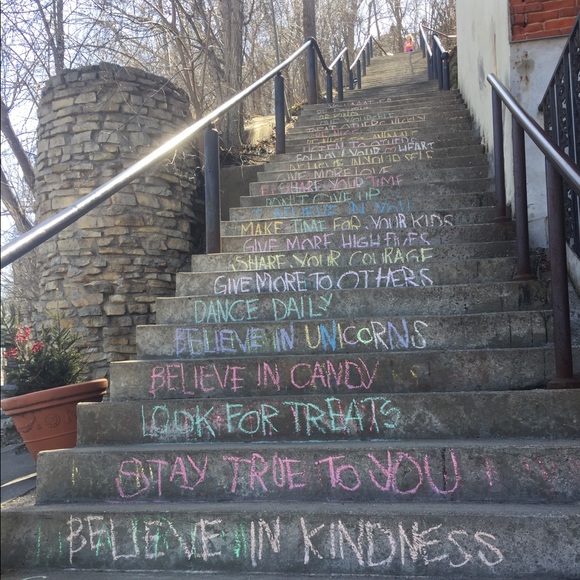 FOLLOW YOUR HEART
BELIEVE IN YOURSELF
GIVE MORE LOVE
SHARE YOUR TIME
DON'T GIVE UP
BELIEVE IN YOU
MAKE TIME FOR YOUR KIDS
GIVE MORE HIGH FIVES
SHARE YOUR COURAGE
GIVE MORE TO OTHERS
DANCE DAILY
BELIEVE IN UNICORNS
BELIEVE IN CANDY
LOOK FOR TREATS
STAY TRUE TO YOU
BELIEVE IN KINDNESS